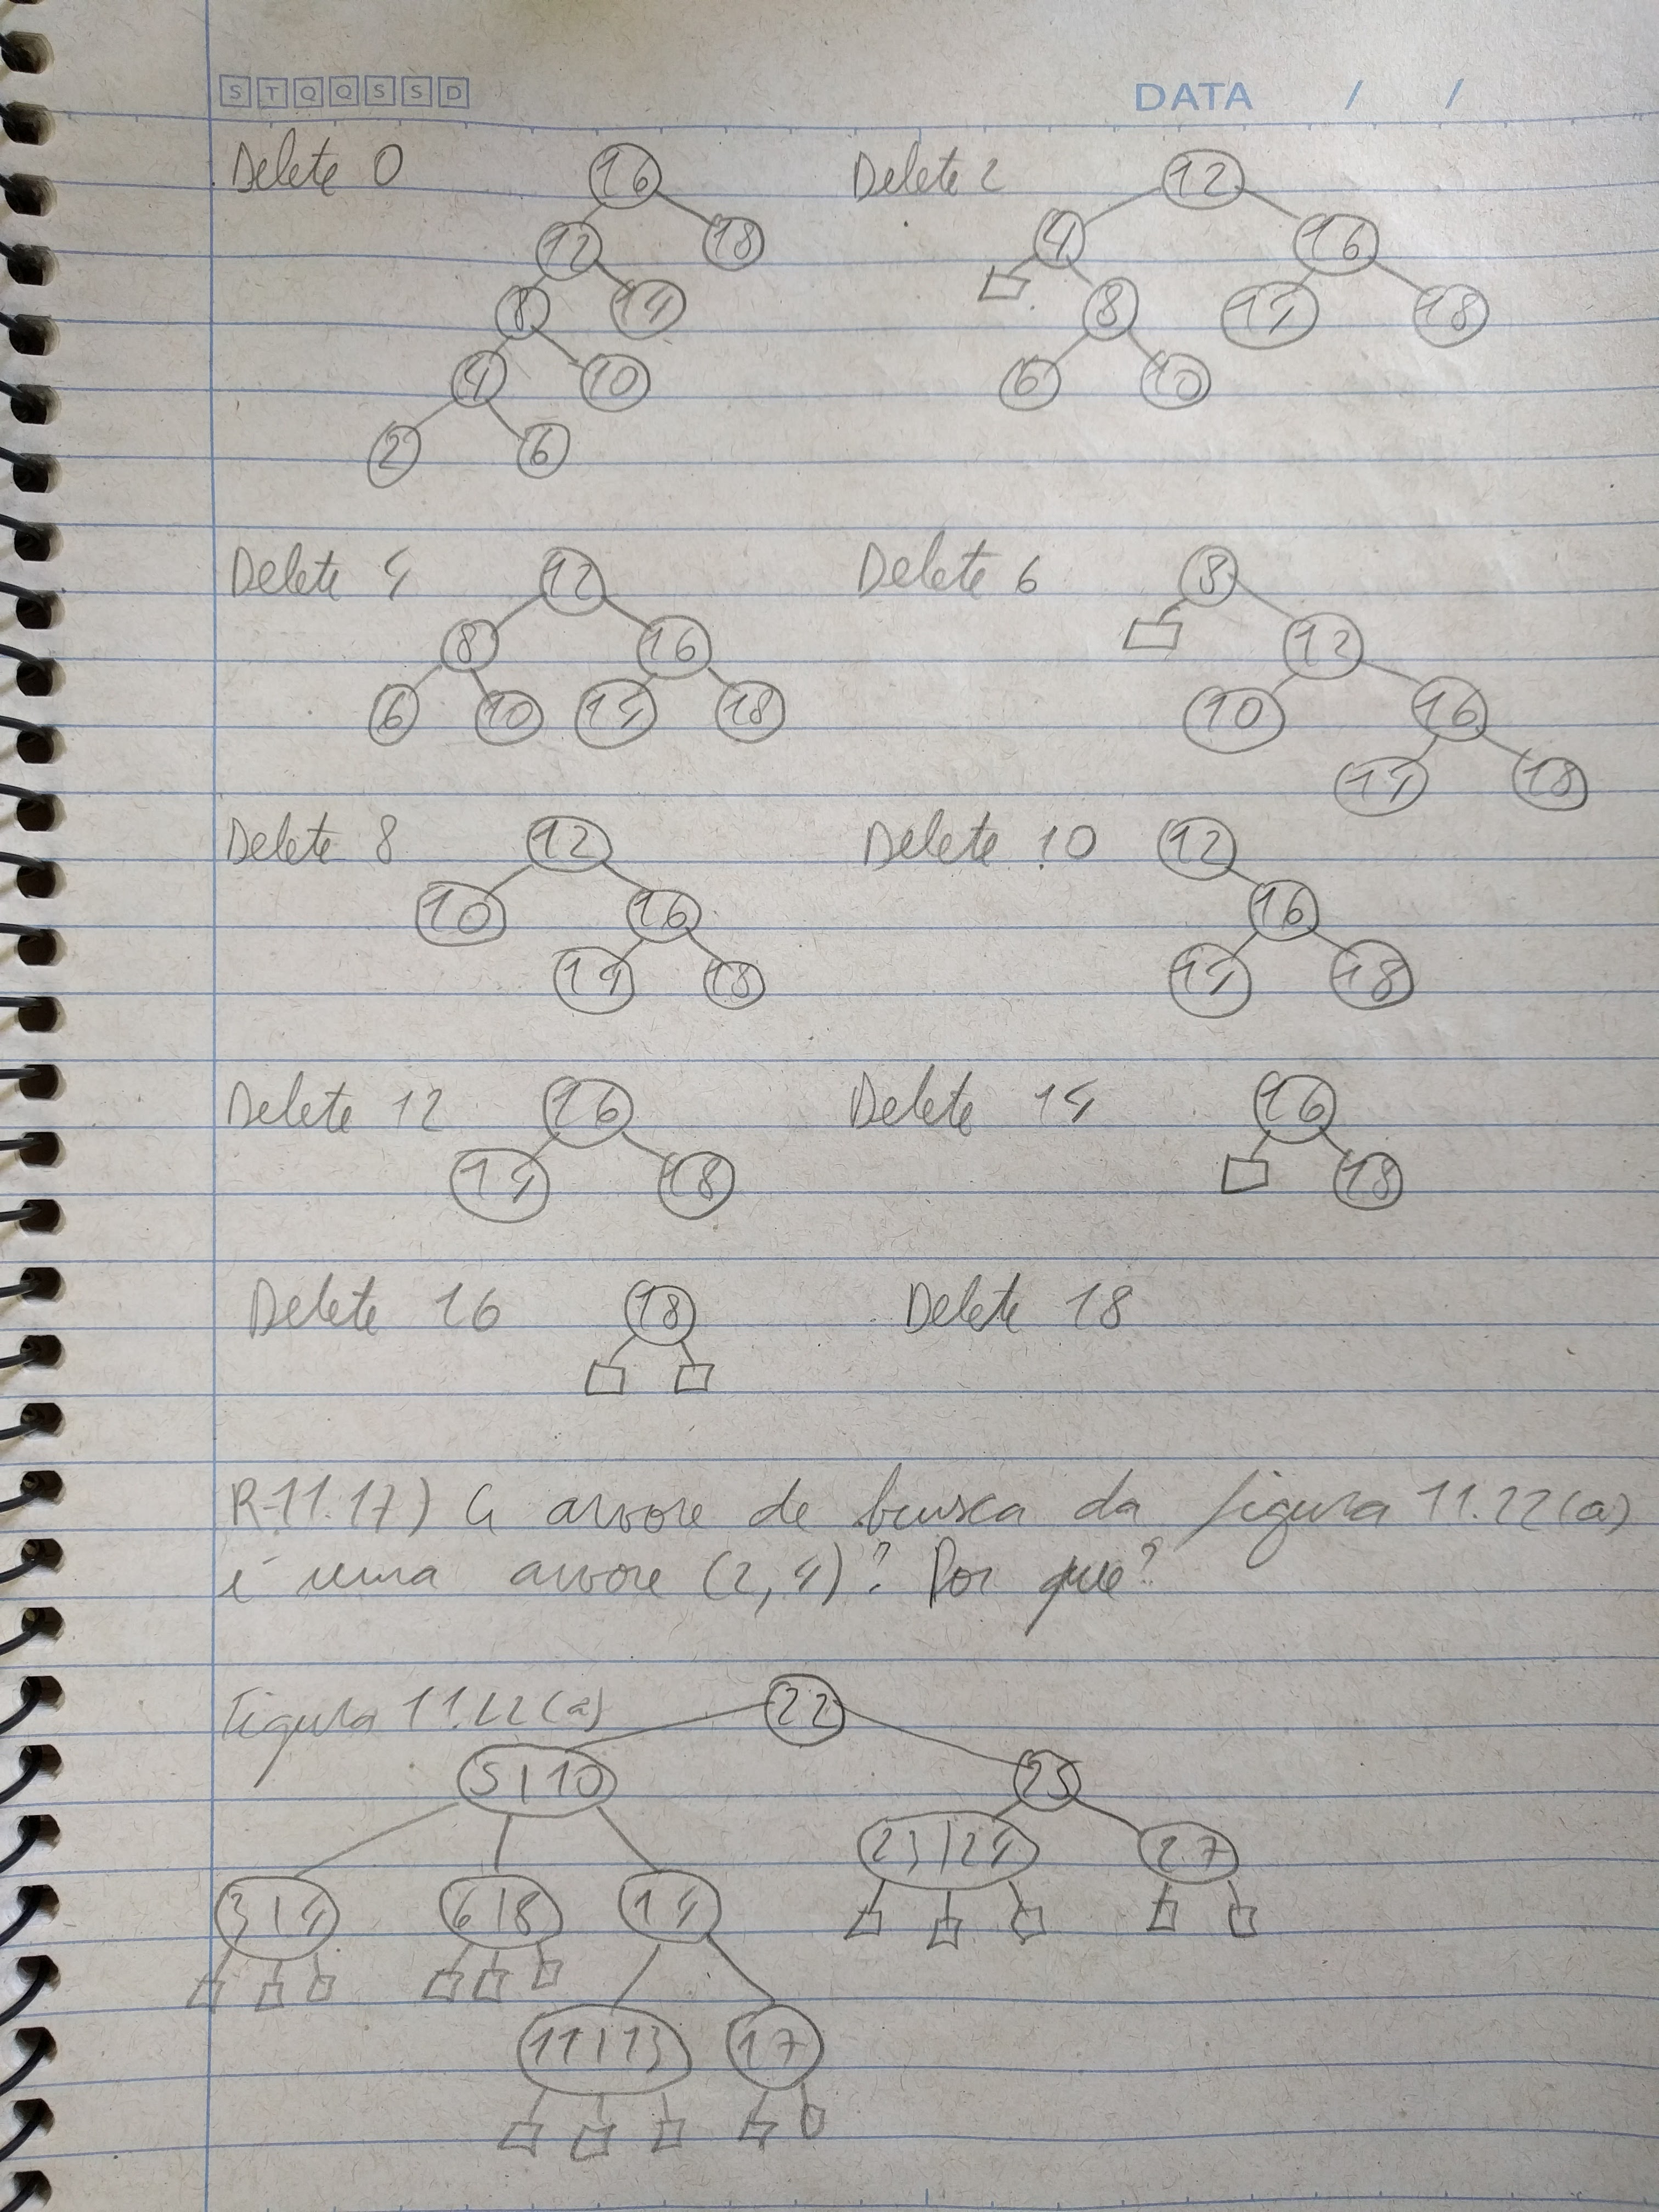 S T Q Q S S D DATA / /
Delete 0
16
12 18
8 14
4 10
2 6
Delete 2
12
4 16
8 14 18
6 10
Delete 4
12
8 16
6 10 14 18
Delete 6
8
12
10 16
14 18
Delete 8
12
10 16
14 18
Delete 10
12
16
14 18
Delete 12
16
14 18
Delete 14
16
18
Delete 16
18
Delete 18
R-11.17) A arvore de busca da figura 11.22(a)
é uma arvore (2,4)? Por que?
Figura 11.22(a)
22
5|10 25
23|24 27
3|4 6|8 14
11|13 17